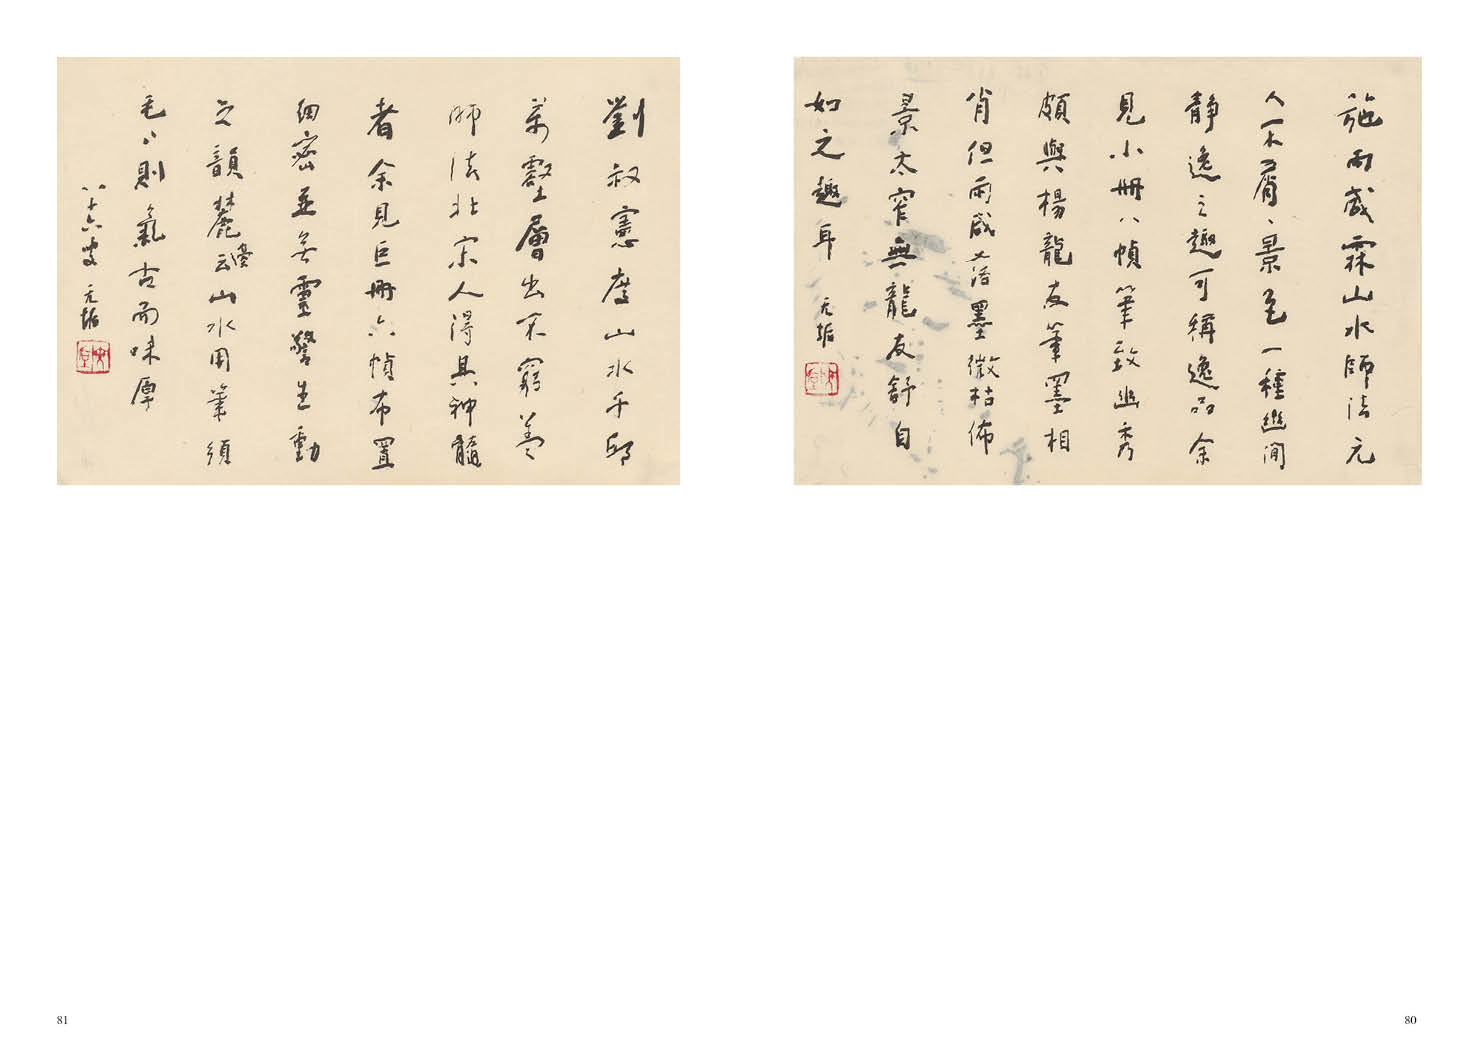 施雨咸霖山水師法元
人不屑〻景色一種幽閒
靜逸之趣可稱逸品余
見小冊八幀筆致幽秀
頗與楊龍友筆墨相
肖但雨咸落墨微枯佈
景太窄無龍友舒自
如之趣耳 无垢
80
劉叔憲度山水千邱
萬壑層出不窮蓋
師法北宋人得其神髓
者余見巨冊六幀布置
細密並無靈警生動
之韻麓臺云山水用筆須
毛〻則氣古而味厚
八十六叟 无垢
81